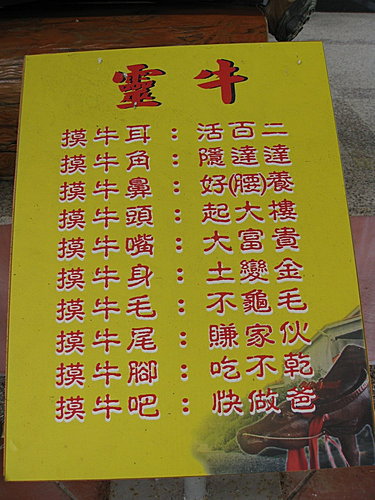 靈牛
摸牛耳：活百二
摸牛角：隱達達
摸牛鼻：好(腰)養
摸牛頭：起大樓
摸牛嘴：大富貴
摸牛身：土變金
摸牛毛：不龜毛
摸牛尾：賺家伙
摸牛腳：吃不乾
摸牛吧：快做爸